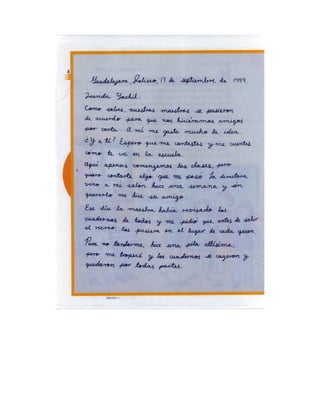 Guadalajara, Jalisco, 17 de septiembre de 1999.
Querida Xochil:
Como sabes, nuestras maestras se pusieron
de acuerdo para que nos hiciéramos amigos
por carta. A mí me gusta mucho la idea.
¿Y a ti? Espero que me contestes y me cuentes
cómo te va en la escuela.
Aquí apenas comenzamos las clases, pero
quiero contarte algo que me pasó. La directora
vino a mi salón hace una semana y sin
quererlo me hice su amigo.
Ese día la maestra había revisado los
cuadernos de todos y me pidió que antes de salir
al recreo, los pusiera en el lugar de cada quien.
Para no tardarme, hice una pila altísima,
pero me tropecé y los cuadernos se cayeron y
quedaron por todas partes.